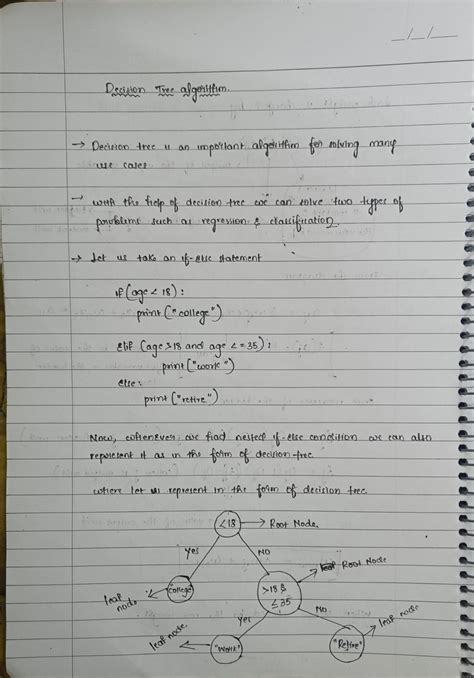 _/_/_
Decision Tree algorithm.
→ Decision tree is an important algorithm for solving many
use cases
→ with the help of decision tree we can solve two types of
problems such as regression & classification.
→ Let us take an if-else statement
if (age < 18) :
print ("college")
elif (age >18 and age <=35) :
print ("work")
else :
print ("retire")
Now, whenever we find nested if-else condition we can also
represent it as in the form of decision-tree.
where let us represent in the form of decision tree.
<18 → Root Node.
Yes
NO
"college"
leaf node
>18 &
≤ 35
Root Node
Yes
No
"Work"
leaf node
"Retire"
leaf node